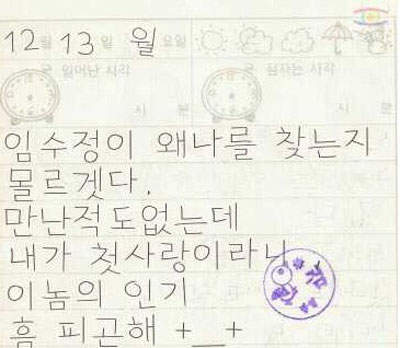 12월 13일 월요일
일어난 시각 잠자는 시각
시 분 시 분
임수정이 왜나를 찾는지
몰르겟다.
만난적도없는데
내가 첫사랑이라니
이놈의 인기
흠 피곤해 +__+